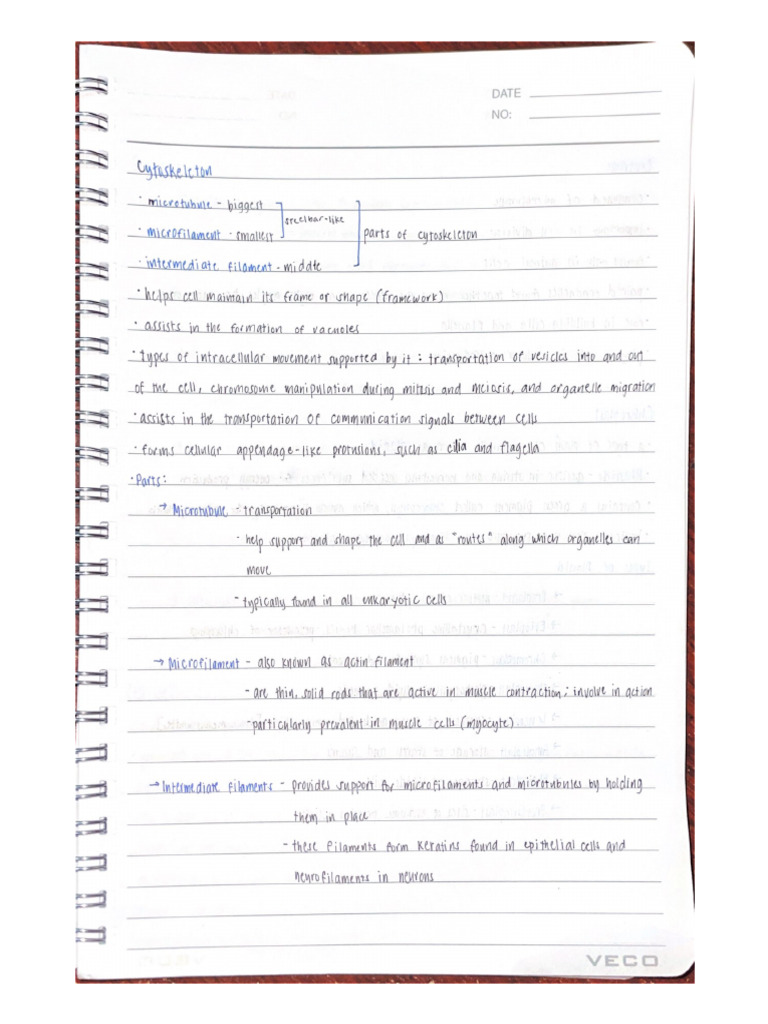 DATE
NO:
Cytoskeleton
· microtubule - biggest
steelbar-like
· microfilament - smallest
parts of cytoskeleton
· intermediate filament - middle
· helps cell maintain its frame or shape (framework)
· assists in the formation of vacuoles
· types of intracellular movement supported by it : transportation of vesicles into and out
of the cell, chromosome manipulation during mitosis and meiosis, and organelle migration
· assists in the transportation of communication signals between cells
· forms cellular appendage-like protrusions, such as cilia and flagella
· Parts:
→ Microtubule - transportation
- help support and shape the cell and as "routes" along which organelles can
move
- typically found in all eukaryotic cells
→ Microfilament - also known as actin filament
- are thin, solid rods that are active in muscle contraction; involve in action
- particularly prevalent in muscle cells (myocyte)
→ Intermediate filaments - provides support for microfilaments and microtubules by holding
them in place
- these filaments form keratins found in epithelial cells and
neurofilaments in neurons
VECO